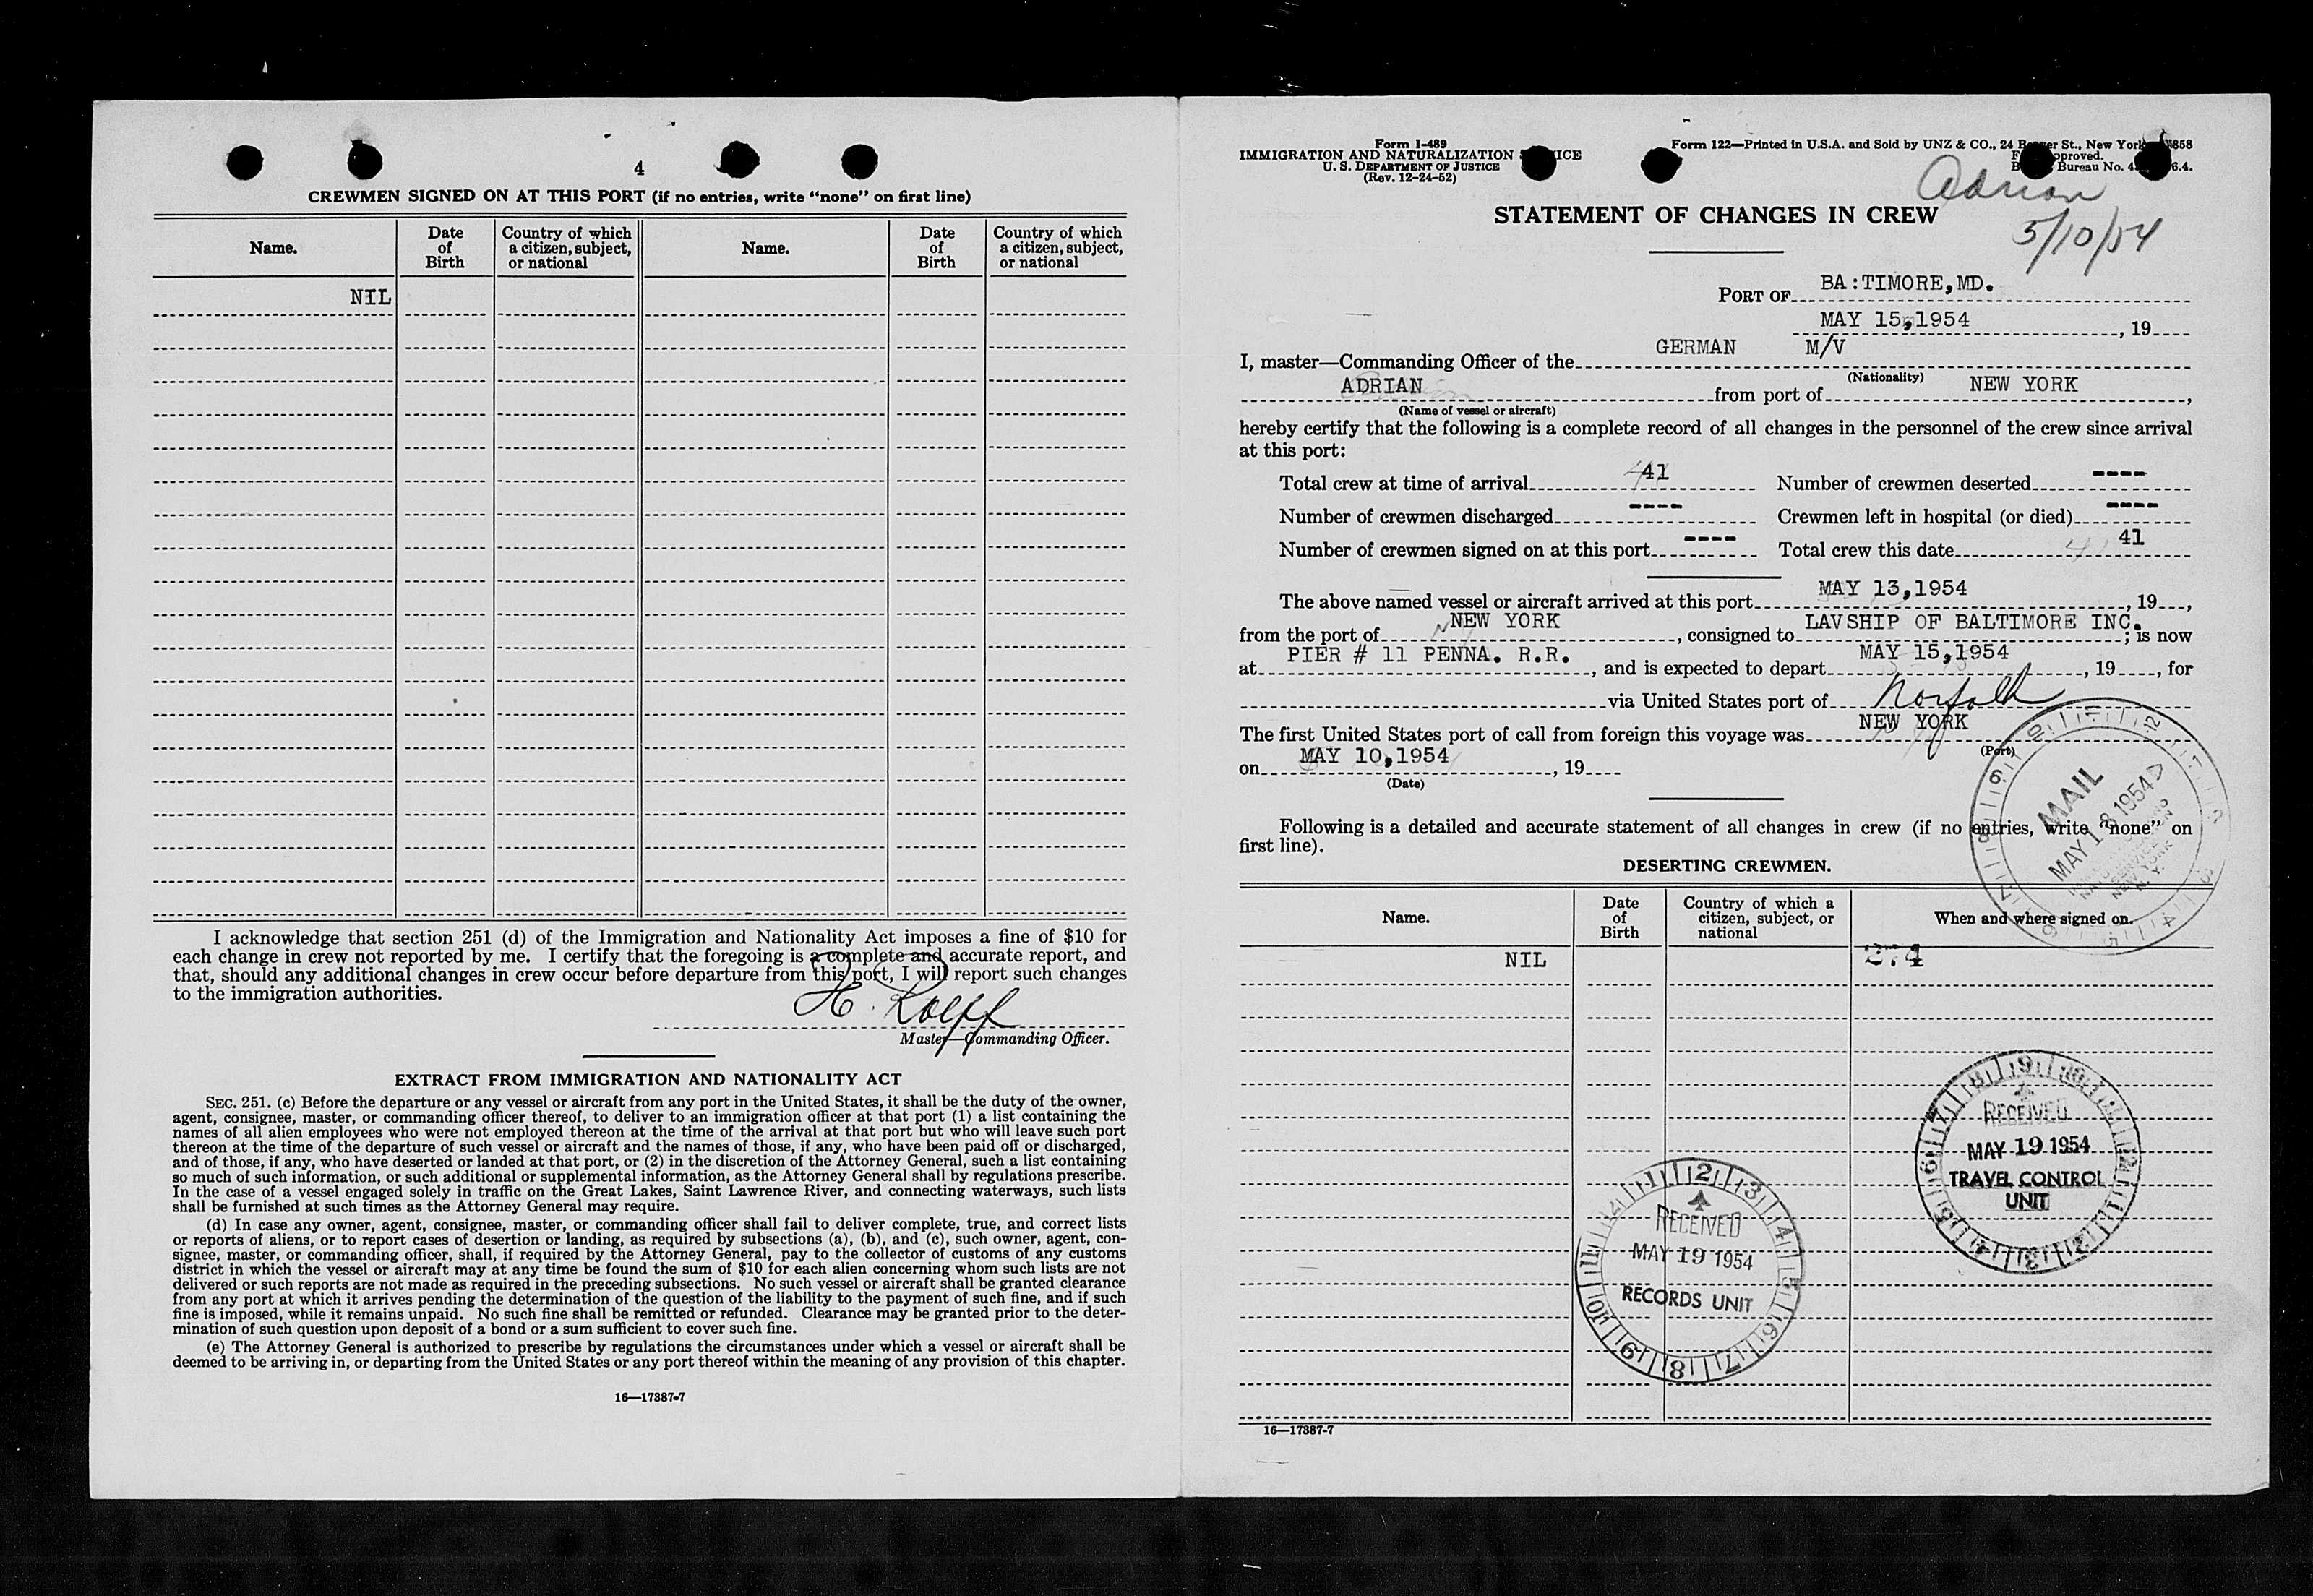 4
CREWMEN SIGNED ON AT THIS PORT (if no entries, write “none” on first line)
Name. Date of Birth Country of which a citizen, subject, or national Name. Date of Birth Country of which a citizen, subject, or national
NIL
I acknowledge that section 251 (d) of the Immigration and Nationality Act imposes a fine of $10 for
each change in crew not reported by me. I certify that the foregoing is a complete and accurate report, and
that, should any additional changes in crew occur before departure from this port, I will report such changes
to the immigration authorities.
H. Rolff
Master—Commanding Officer.
EXTRACT FROM IMMIGRATION AND NATIONALITY ACT
SEC. 251. (c) Before the departure or any vessel or aircraft from any port in the United States, it shall be the duty of the owner,
agent, consignee, master, or commanding officer thereof, to deliver to an immigration officer at that port (1) a list containing the
names of all alien employees who were not employed thereon at the time of the arrival at that port but who will leave such port
thereon at the time of the departure of such vessel or aircraft and the names of those, if any, who have been paid off or discharged,
and of those, if any, who have deserted or landed at that port, or (2) in the discretion of the Attorney General, such a list containing
so much of such information, or such additional or supplemental information, as the Attorney General shall by regulations prescribe.
In the case of a vessel engaged solely in traffic on the Great Lakes, Saint Lawrence River, and connecting waterways, such lists
shall be furnished at such times as the Attorney General may require.
(d) In case any owner, agent, consignee, master, or commanding officer shall fail to deliver complete, true, and correct lists
or reports of aliens, or to report cases of desertion or landing, as required by subsections (a), (b), and (c), such owner, agent, con-
signee, master, or commanding officer, shall, if required by the Attorney General, pay to the collector of customs of any customs
district in which the vessel or aircraft may at any time be found the sum of $10 for each alien concerning whom such lists are not
delivered or such reports are not made as required in the preceding subsections. No such vessel or aircraft shall be granted clearance
from any port at which it arrives pending the determination of the question of the liability to the payment of such fine, and if such
fine is imposed, while it remains unpaid. No such fine shall be remitted or refunded. Clearance may be granted prior to the deter-
mination of such question upon deposit of a bond or a sum sufficient to cover such fine.
(e) The Attorney General is authorized to prescribe by regulations the circumstances under which a vessel or aircraft shall be
deemed to be arriving in, or departing from the United States or any port thereof within the meaning of any provision of this chapter.
16—17387-7
Form I-489
IMMIGRATION AND NATURALIZATION
U. S. DEPARTMENT OF JUSTICE
(Rev. 12-24-52)
Form 122—Printed in U.S.A. and Sold by UNZ & CO., 24 St., New York
Bureau No.
Adrian
5/10/54
STATEMENT OF CHANGES IN CREW
PORT OF BA:TIMORE,MD.
MAY 15,1954, 19
I, master—Commanding Officer of the GERMAN M/V
(Nationality)
ADRIAN from port of NEW YORK,
(Name of vessel or aircraft)
hereby certify that the following is a complete record of all changes in the personnel of the crew since arrival
at this port:
Total crew at time of arrival 41 Number of crewmen deserted ----
Number of crewmen discharged ---- Crewmen left in hospital (or died) ----
Number of crewmen signed on at this port ---- Total crew this date 41
The above named vessel or aircraft arrived at this port MAY 13,1954, 19,
from the port of NEW YORK, consigned to LAVSHIP OF BALTIMORE INC.; is now
at PIER # 11 PENNA. R.R., and is expected to depart MAY 15,1954, 19, for
via United States port of Norfolk
The first United States port of call from foreign this voyage was NEW YORK
(Port)
on MAY 10,1954, 19
(Date)
MAIL
MAY 18 1954
NEW YORK
N. Y.
Following is a detailed and accurate statement of all changes in crew (if no entries, write “none” on
first line).
DESERTING CREWMEN.
Name. Date of Birth Country of which a citizen, subject, or national When and where signed on.
NIL 274
RECEIVED
MAY 19 1954
TRAVEL CONTROL
UNIT
RECEIVED
MAY 19 1954
RECORDS UNIT
16—17387-7